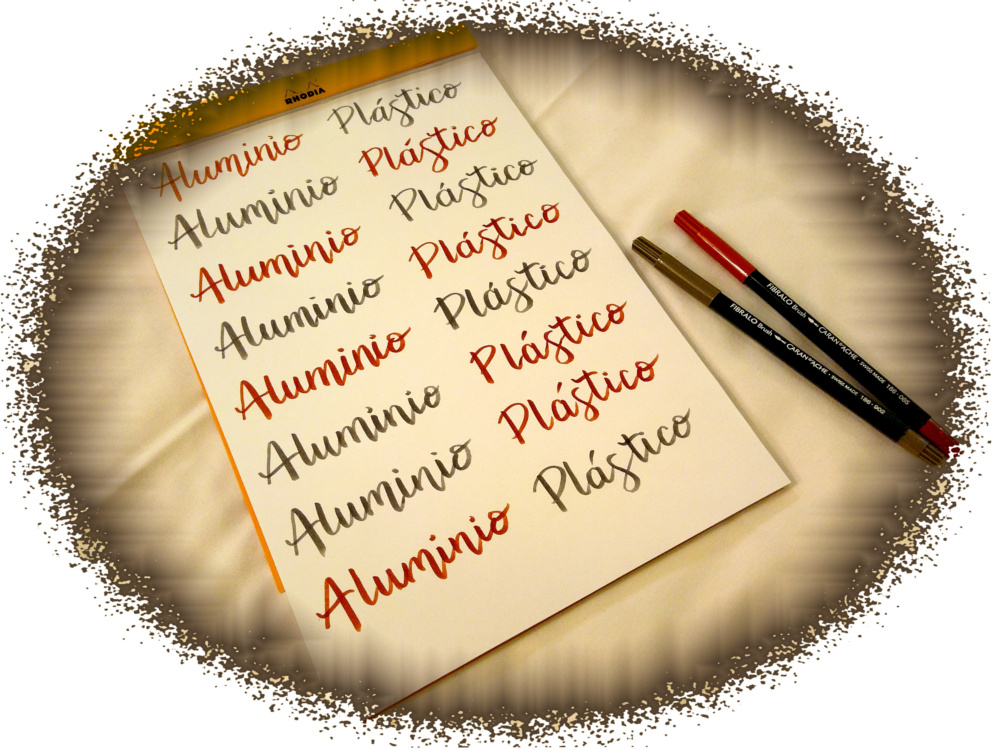 RHODIA
Aluminio Plástico
Aluminio Plástico
Aluminio Plástico
Aluminio Plástico
Aluminio Plástico
Aluminio Plástico
Aluminio Plástico
Aluminio Plástico
FIBRALO Brush CARAN D'ACHE · SWISS MADE 186 · 065
FIBRALO Brush CARAN D'ACHE · SWISS MADE 186